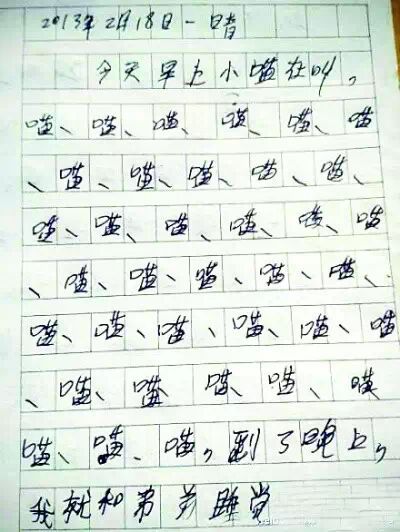 2013年2月18日一晴
今天早上小喵在叫，
喵、喵、喵、喵、喵、喵
、喵、喵、喵、喵、喵、
喵、喵、喵、喵、喵、喵
、喵、喵、喵、喵、喵、
喵、喵、喵、喵、喵、喵
、喵、喵 喵 喵、喵
喵、喵、喵，到了晚上，
我就和弟弟睡觉